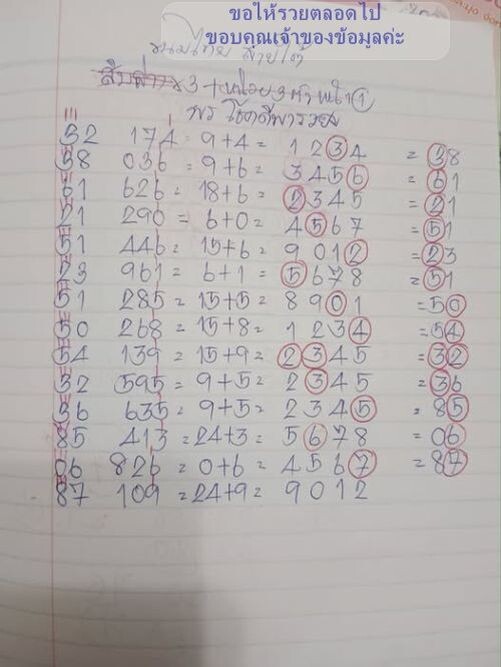 ขอให้รวยตลอดไป
ขอบคุณเจ้าของข้อมูลค่ะ
ขนมไทย สายใต้
สิบล่าง×3+หน่วย 3 ตัวหน้า 1
พร โชคดีพารวย
32 174 = 9+4 = 1234 = 38
38 036 = 9+6 = 3456 = 61
61 626 = 18+6 = 2345 = 21
21 290 = 6+0 = 4567 = 51
51 446 = 15+6 = 9012 = 23
23 961 = 6+1 = 5678 = 51
51 285 = 15+5 = 8901 = 50
50 268 = 15+8 = 1234 = 54
54 139 = 15+9 = 2345 = 32
32 595 = 9+5 = 2345 = 36
36 635 = 9+5 = 2345 = 85
85 413 = 24+3 = 5678 = 06
06 826 = 0+6 = 4567 = 87
87 109 = 24+9 = 9012